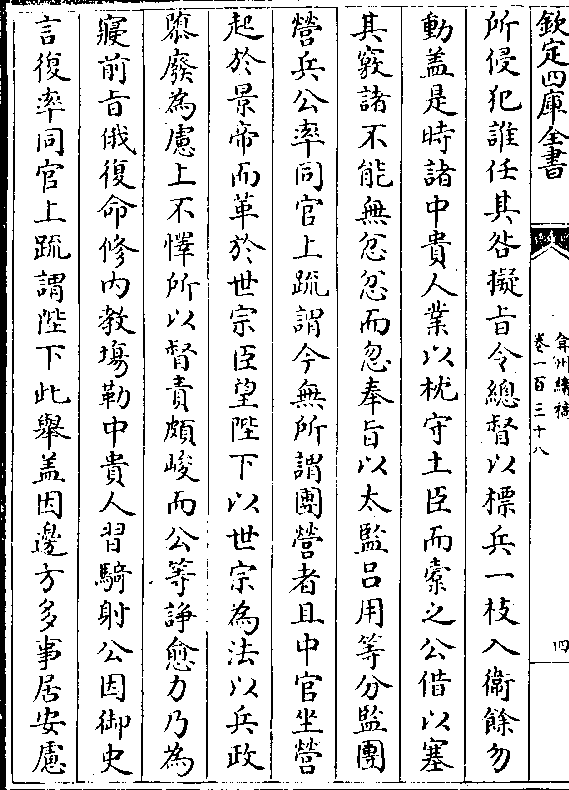 欽定四庫全書
弇州續稿
卷一百三十八
四
所侵犯誰任其咎擬㫖令總督以標兵一枝入衞餘勿
動盖是時諸中貴人業以枕守土臣而索之公借以塞
其竅諸不能無忿忿而忽奉㫖以太監吕用等分監團
營兵公率同官上疏謂今無所謂團營者且中官坐營
起於景帝而革於世宗臣望陛下以世宗為法以兵政
隳廢為慮上不懌所以督責頗峻而公等諍愈力乃為
寢前㫖俄復命修内教塲勒中貴人習騎射公因御史
言復率同官上疏謂陛下此舉盖因邊方多事居安慮